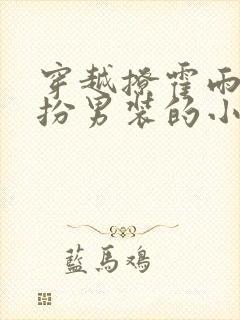 穿越撩霍雨
扮男装的小
藍馬鴻